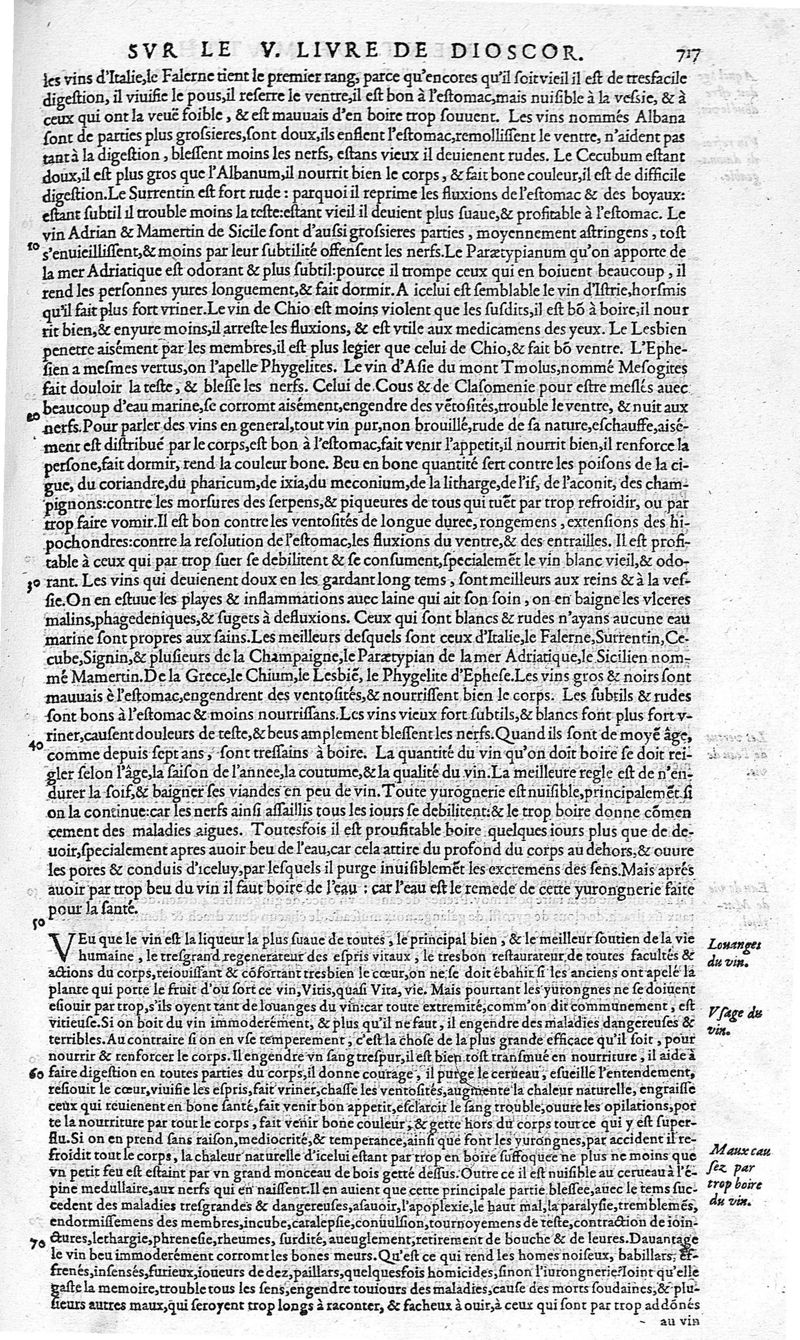 SVR LE V. LIVRE DE DIOSCOR. 717
les vins d'Italie,le Falerne tient le premier rang, parce qu'encores qu'il soit vieil il est de tresfacile
digestion, il viuifie le pous,il reserre le ventre,il est bon à l'estomac,mais nuisible à la vessie, & à
ceux qui ont la veuë foible , & est mauuais d'en boire trop souuent. Les vins nommés Albana
sont de parties plus grossieres,sont doux,ils enflent l'estomac,remollissent le ventre, n'aident pas
tant à la digestion , blessent moins les nerfs, estans vieux il deuienent rudes. Le Cecubum estant
doux,il est plus gros que l'Albanum,il nourrit bien le corps, & fait bone couleur,il est de difficile
digestion.Le Surrentin est fort rude : parquoi il reprime les fluxions de l'estomac & des boyaux:
estant subtil il trouble moins la teste:estant vieil il deuient plus suaue,& profitable à l'estomac. Le
vin Adrian & Mamertin de Sicile sont d'aussi grossieres parties , moyennement astringens , tost
10 s'enuieillissent,& moins par leur subtilité offensent les nerfs.Le Parætypianum qu'on apporte de
la mer Adriatique est odorant & plus subtil:pource il trompe ceux qui en boiuent beaucoup , il
rend les personnes yures longuement,& fait dormir. A icelui est semblable le vin d'Istrie,horsmis
qu'il fait plus fort vriner.Le vin de Chio est moins violent que les susdits,il est bō à boire,il nour
rit bien,& enyure moins,il arreste les fluxions, & est vtile aux medicamens des yeux. Le Lesbien
penetre aisément par les membres,il est plus legier que celui de Chio,& fait bō ventre. L'Ephe-
sien a mesmes vertus,on l'apelle Phygelites. Le vin d'Asie du mont Tmolus,nommé Mesogites
fait douloir la teste, & blesse les nerfs. Celui de Cous & de Clasomenie pour estre meslés auec
20 beaucoup d'eau marine,se corromt aisément,engendre des vētosités,trouble le ventre, & nuit aux
nerfs.Pour parler des vins en general,tout vin pur,non brouillé,rude de sa nature,eschauffe,aisé-
ment est distribué par le corps,est bon à l'estomac,fait venir l'appetit,il nourrit bien,il renforce la
persone,fait dormir, rend la couleur bone. Beu en bone quantité sert contre les poisons de la ci-
gue, du coriandre,du pharicum,de ixia,du meconium,de la litharge,de l'if, de l'aconit, des cham-
pignons:contre les morsures des serpens,& piqueures de tous qui tuēt par trop refroidir, ou par
trop faire vomir.Il est bon contre les ventosités de longue duree, rongemens , extensions des hi-
pochondres:contre la resolution de l'estomac,les fluxions du ventre,& des entrailles. Il est profi-
table à ceux qui par trop suer se debilitent & se consument,specialemēt le vin blanc vieil,& odo-
30 rant. Les vins qui deuienent doux en les gardant long tems , sont meilleurs aux reins & à la ves-
sie.On en estuue les playes & inflammations auec laine qui ait son soin , on en baigne les vlceres
malins,phagedeniques,& sugets à defluxions. Ceux qui sont blancs & rudes n'ayans aucune eau
marine sont propres aux sains.Les meilleurs desquels sont ceux d'Italie,le Falerne,Surrentin,Ce-
cube,Signin,& plusieurs de la Champaigne,le Parætypian de la mer Adriatique,le Sicilien nom-
mé Mamertin.De la Grece,le Chium,le Lesbiē, le Phygelite d'Ephese.Les vins gros & noirs sont
mauuais è l'estomac,engendrent des ventosités,& nourrissent bien le corps. Les subtils & rudes
sont bons à l'estomac & moins nourrissans.Les vins vieux fort subtils,& blancs font plus fort v-
riner,causent douleurs de teste,& beus amplement blessent les nerfs.Quand ils sont de moyē âge,
40 comme depuis sept ans , sont tressains à boire. La quantité du vin qu'on doit boire se doit rei-
gler selon l'âge,la saison de l'annee,la coutume,& la qualité du vin.La meilleure regle est de n'en-
durer la soif,& baigner ses viandes en peu de vin.Toute yurognerie est nuisible,principalemēt si
on la continue:car les nerfs ainsi assaillis tous les iours se debilitent:& le trop boire donne cōmen
cement des maladies aigues. Toutesfois il est proufitable boire quelques iours plus que de de-
uoir,specialement apres auoir beu de l'eau,car cela attire du profond du corps au dehors,& ouure
les pores & conduis d'iceluy,par lesquels il purge inuisiblemēt les excremens des sens.Mais aprés
auoir par trop beu du vin il faut boire de l'eau : car l'eau est le remede de cette yurongnerie faite
50 pour la santé.
VEu que le vin est la liqueur la plus suaue de toutes , le principal bien , & le meilleur soutien de la vie
humaine , le tresgrand regenerateur des espris vitaux , le tresbon restaurateur de toutes facultés &
actions du corps,reiouissant & cōfortant tresbien le cœur,on ne se doit ébahir si les anciens ont apelé la
plante qui porte le fruit d'où sort ce vin,Vitis,quasi Vita, vie. Mais pourtant les yurongnes ne se doiuent
esiouir par trop,s'ils oyent tant de louanges du vin:car toute extremité,comm'on dit communement , est
vitieuse.Si on boit du vin immoderément, & plus qu'il ne faut , il engendre des maladies dangereuses &
terribles.Au contraire si on en vse temperement , c'est la chose de la plus grande efficace qu'il soit , pour
nourrir & renforcer le corps.Il engendre vn sang trespur,il est bien tost transmué en nourriture , il aide à
60 faire digestion en toutes parties du corps,il donne courage , il purge le cerueau , esueille l'entendement,
resiouit le cœur,viuifie les espris,fait vriner,chasse les ventosités,augmente la chaleur naturelle, engraisse
ceux qui reuienent en bone santé,fait venir bon appetit,esclarcit le sang trouble,ouure les opilations,por
te la nourriture par tout le corps , fait venir bone couleur , & gette hors du corps tout ce qui y est super-
flu.Si on en prend sans raison,mediocrité,& temperance,ainsi que font les yurongnes,par accident il re-
froidit tout le corps, la chaleur naturelle d'icelui estant par trop en boire suffoquée ne plus ne moins que
vn petit feu est estaint par vn grand monceau de bois getté dessus.Outre ce il est nuisible au cerueau à l'é-
pine medullaire,aux nerfs qui en naissent.Il en auient que cette principale partie blessee,auec le tems suc-
cedent des maladies tresgrandes & dangereuses,asauoir,l'apoplexie,le haut mal,la paralysie,tremblemēs,
endormissemens des membres,incube,catalepsie,conuulsion,tournoyemens de teste,contraction de ioin-
70 ctures,lethargie,phrenesie,rheumes, surdité,aueuglement,retirement de bouche & de leures.Dauantage
le vin beu immoderément corromt les bones meurs.Qu'est ce qui rend les homes noiseux, babillars, ef-
frenés,insensés,furieux,ioueurs de dez,paillars,quelquesfois homicides,sinon l'iurongnerie?Ioint qu'elle
gaste la memoire,trouble tous les sens,engendre toujours des maladies,cause des morts soudaines,& plu-
sieurs autres maux,qui seroyent trop longs à raconter, & facheux à ouir,à ceux qui sont par trop addōnés
au vin
Louanges
du vin.
Vsage du
vin.
Maux cau
sez par
trop boire
du vin.